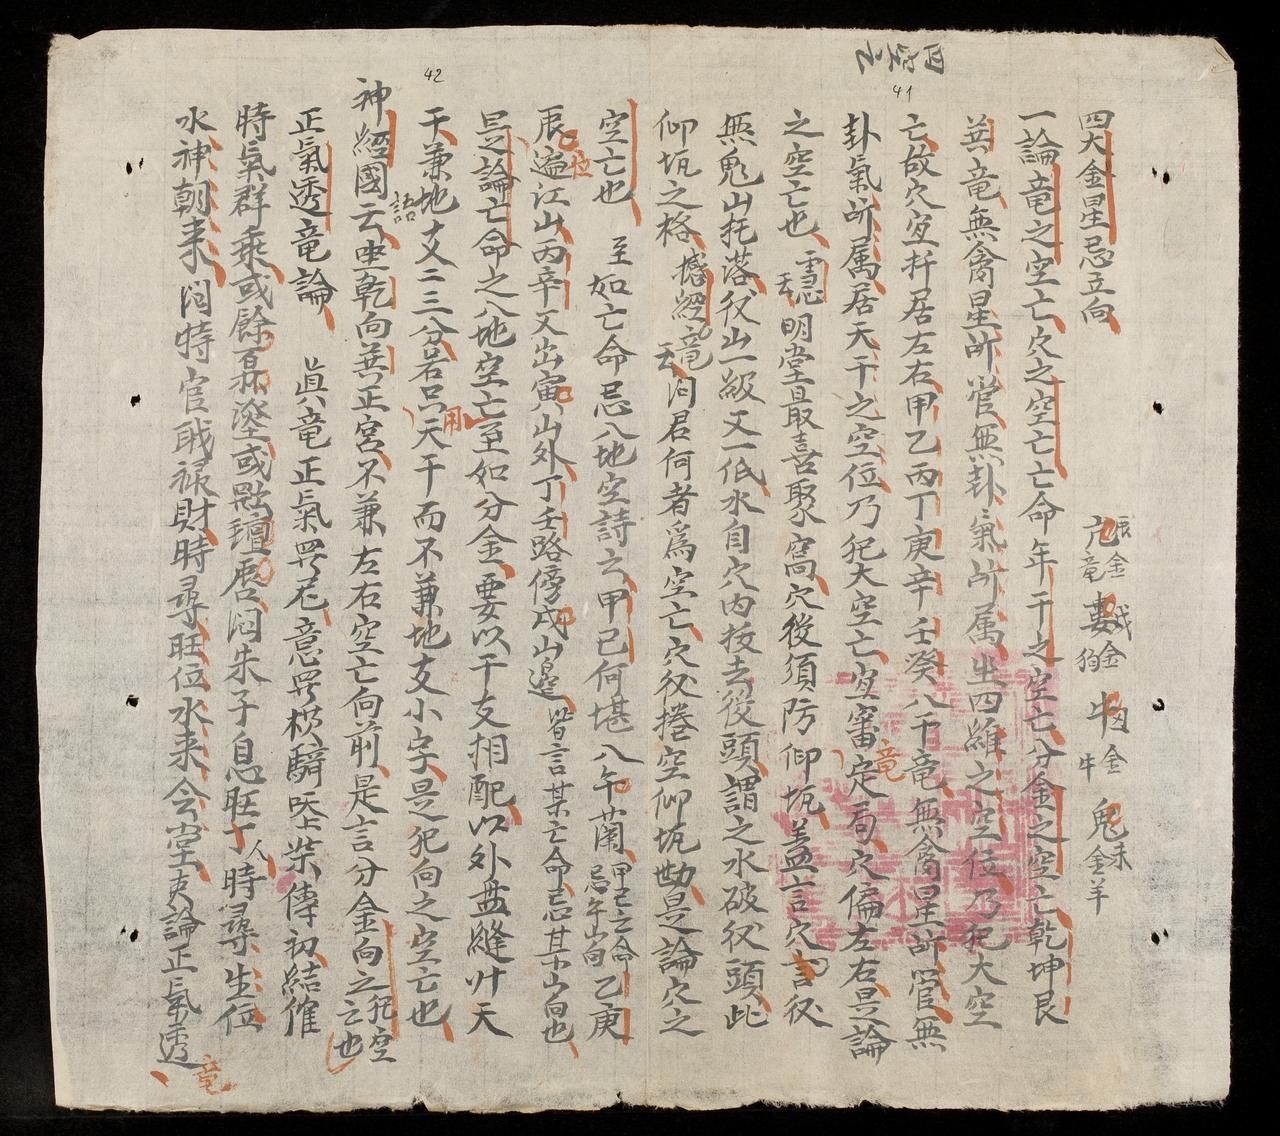 四空亡
41
42
四大金星忌立向 亢金竜 婁金狗 牛金牛 鬼金羊
一論竜之空亡穴之空亡亡命年干之空亡分金之空亡乾坤艮
巽竜無禽星所管無卦氣所属坐四維之空位乃犯大空
亡故穴宜扦居左右甲乙丙丁庚辛壬癸八干竜無禽星所管無
卦氣所属居天干之空位乃犯大空亡宜審定局穴偏左右是論竜
之空亡也 明堂最喜聚窩穴後須防仰瓦盖言穴言後
無鬼山托落後山一級又一低水自穴内扳去後頭謂之水破後頭此
仰瓦之格 撼經竜云 问君何者爲空亡穴後捲空仰瓦勢是論穴之
空亡也 至如亡命忌八地空詩云甲己何堪八午蘭 甲己之命忌午山向 乙庚
辰位遍江山丙辛又出寅山外丁壬路傍戌山邊 皆言某亡命忌某山向也
是論亡命之八地空亡至如分金要以干支相配以外盘縫什天
干兼地支二三分若只用天干而不兼地支小字是犯向之空亡也
神經國語云 乾向巽正宮不兼左右空亡向前是言分金向之犯空亡也
正氣透竜論 眞竜正氣畀花意畀 騎 棠傳初結催
時氣群乘或餘 澄或點 唇问朱子息旺丁人時尋生位
水神朝来问時官职禄財時尋旺位水来会堂夹論正氣透竜